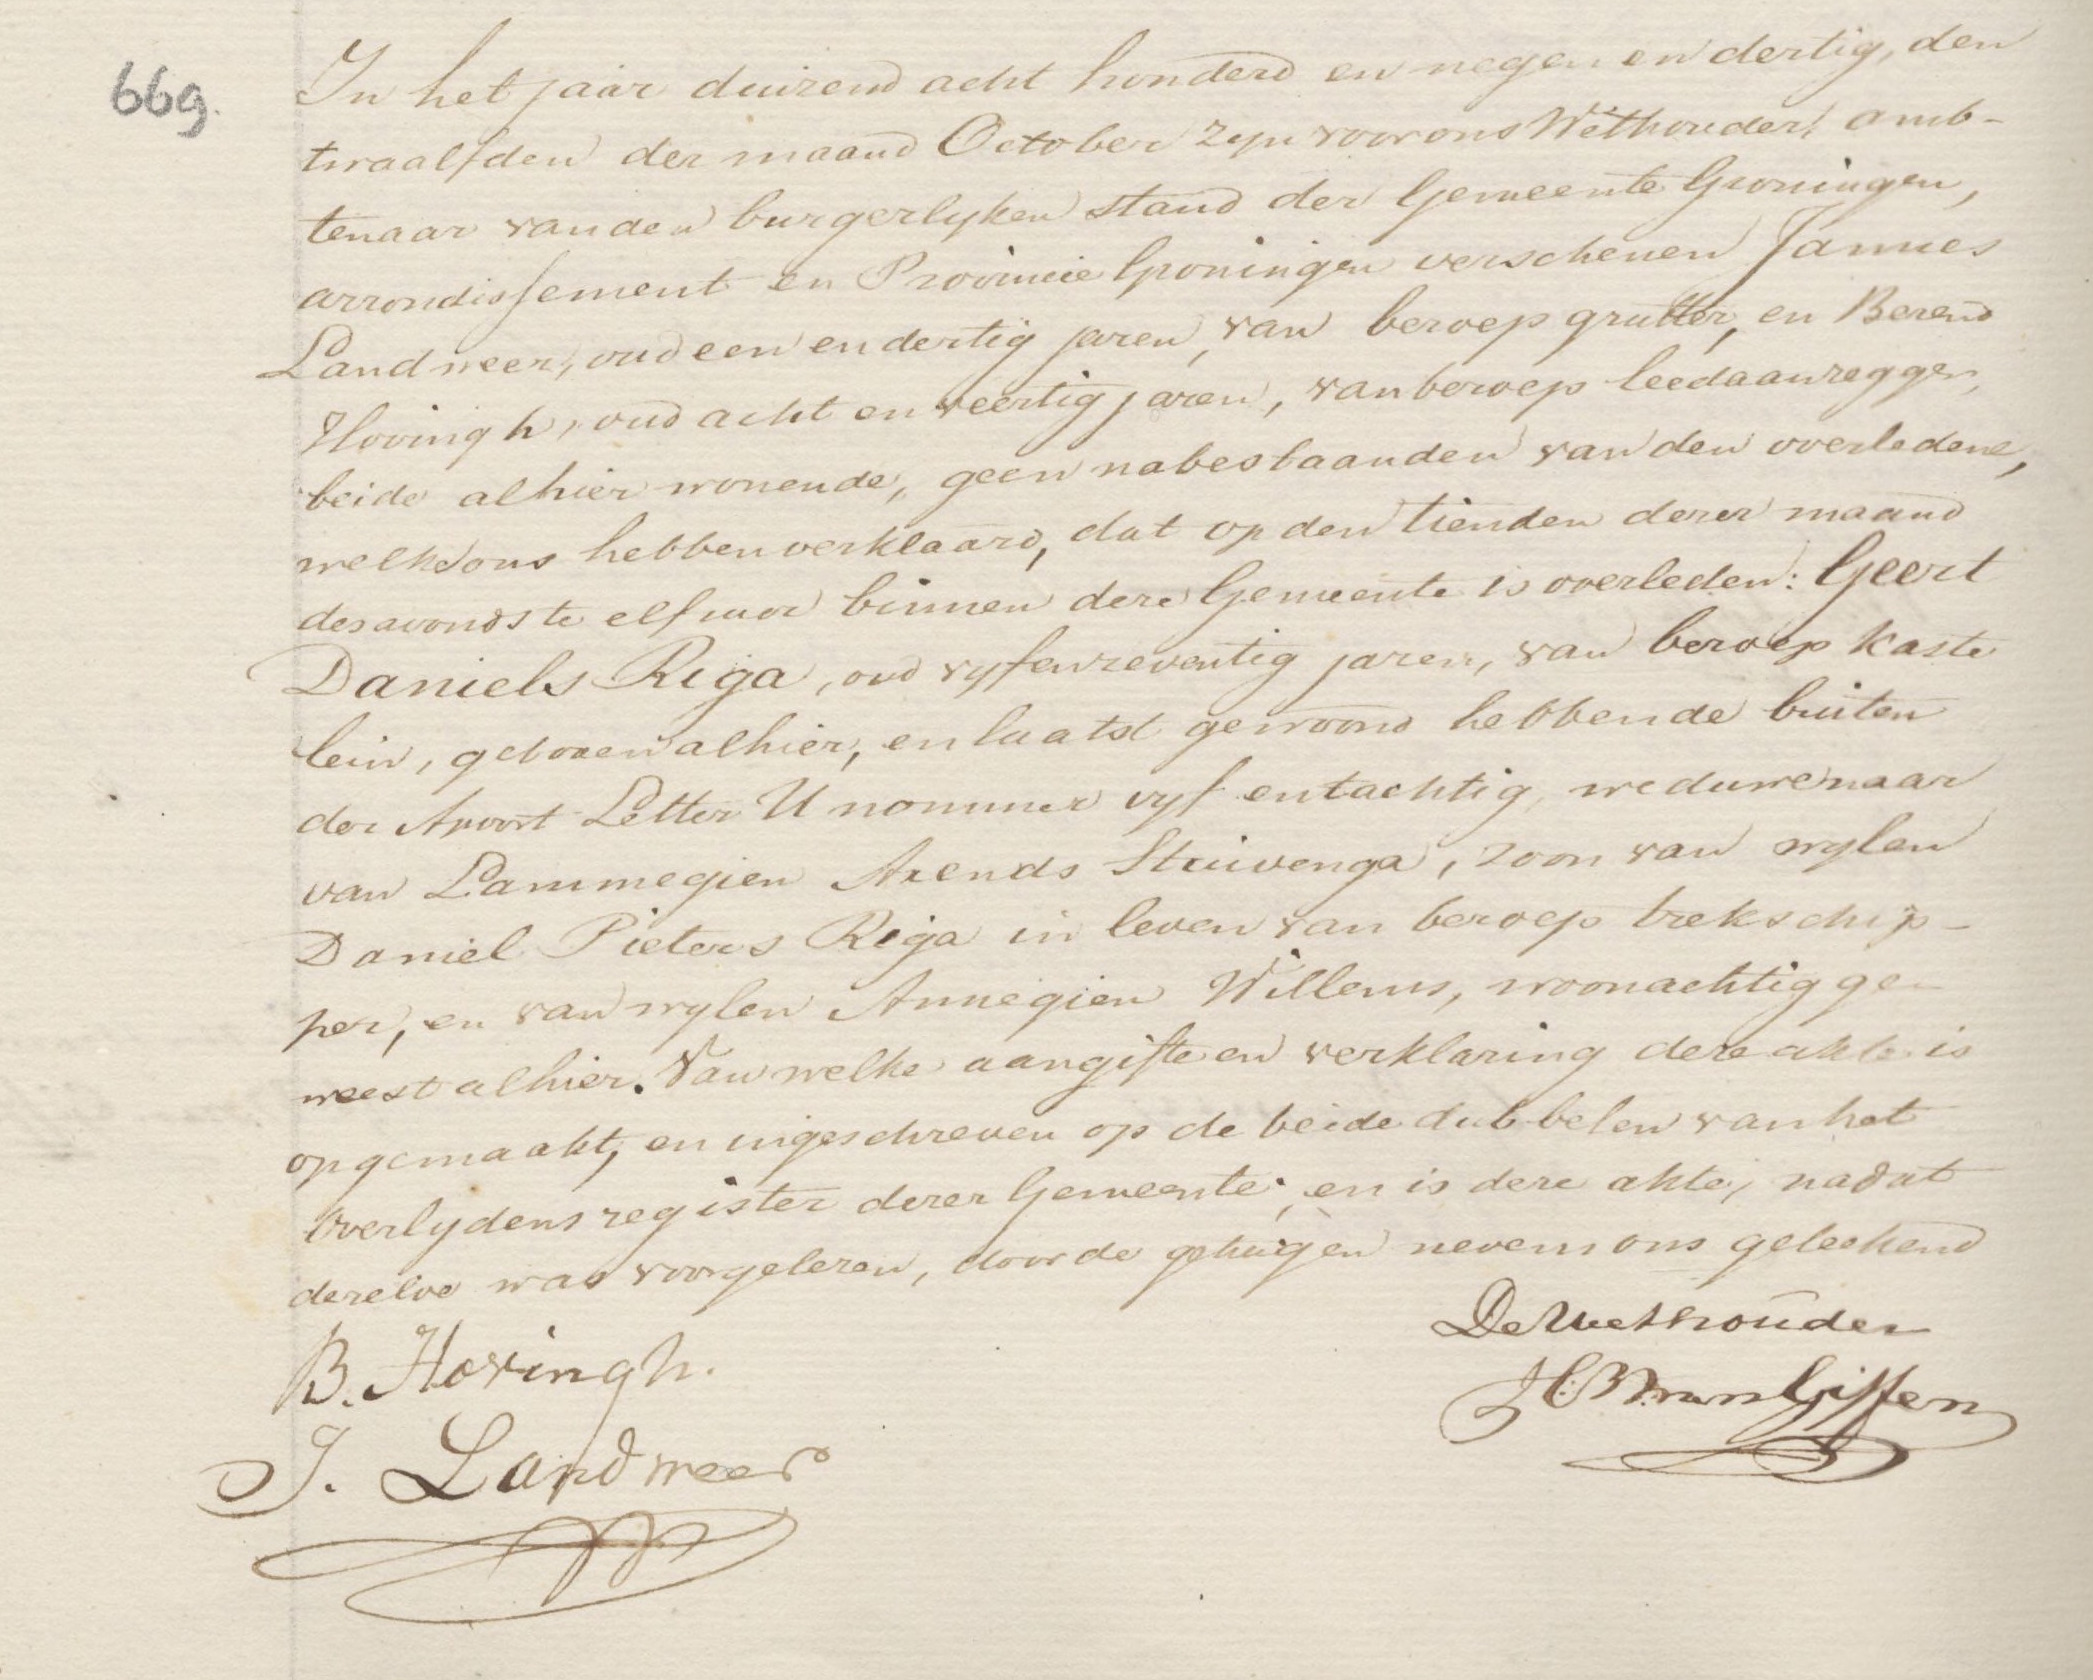 669.
In het jaar duizend acht honderd en negen en dertig, den
twaalfden der maand October zyn voor ons Wethouder, amb-
tenaar van den burgerlyken stand der Gemeente Groningen,
arrondissement en Provincie Groningen verschenen Jannes
Landweer, oud een en dertig jaren, van beroep grutter, en Berend
Hovingh, oud acht en veertig jaren, van beroep leedaanzegger,
beide alhier wonende, geen nabestaanden van den overledene,
welke ons hebben verklaard, dat op den tienden dezer maand
des avonds te elf uur binnen deze Gemeente is overleden: Geert
Daniels Riga, oud vyf en zeventig jaren, van beroep kaste
lein, geboren alhier, en laatst gewoond hebbende buiten
der Apoort Letter U nommer vyf en tachtig, weduwenaar
van Lammegien Arends Stuivenga, zoon van wylen
Daniel Pieters Riga in leven van beroep trekschip-
per, en van wylen Annegien Willems, woonachtig ge-
weest alhier. Van welke aangifte en verklaring deze akte is
opgemaakt, en ingeschreven op de beide dubbelen van het
overlydens register dezer Gemeente; en is deze akte, nadat
dezelve was voorgelezen, door de getuigen nevens ons geteekend
De Wethouder
B. Hovingh.
van Giffen
J. Landweer